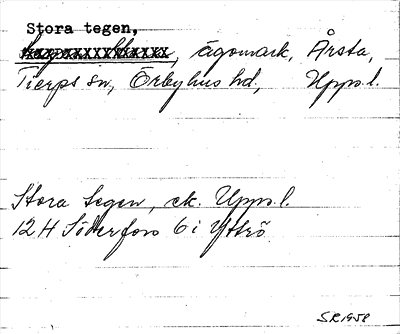 Stora tegen,
ägomark, Årsta,
Tierps sn, Örbyhus hd, Upps.l.
Stora tegen, ek. Upps.l.
12H Söderfors 6 i Yttrö
SR1958